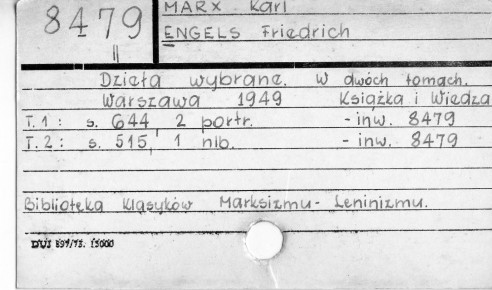 8479
MARX Karl
ENGELS Friedrich
Dzieła wybrane. W dwóch tomach.
Warszawa 1949 Książka i Wiedza
T. 1 : s. 644 2 portr. - inw. 8479
T. 2 : s. 515, 1 nlb. - inw. 8479
Biblioteka Klasyków Marksizmu - Leninizmu.
DUJ 897/75. 15000